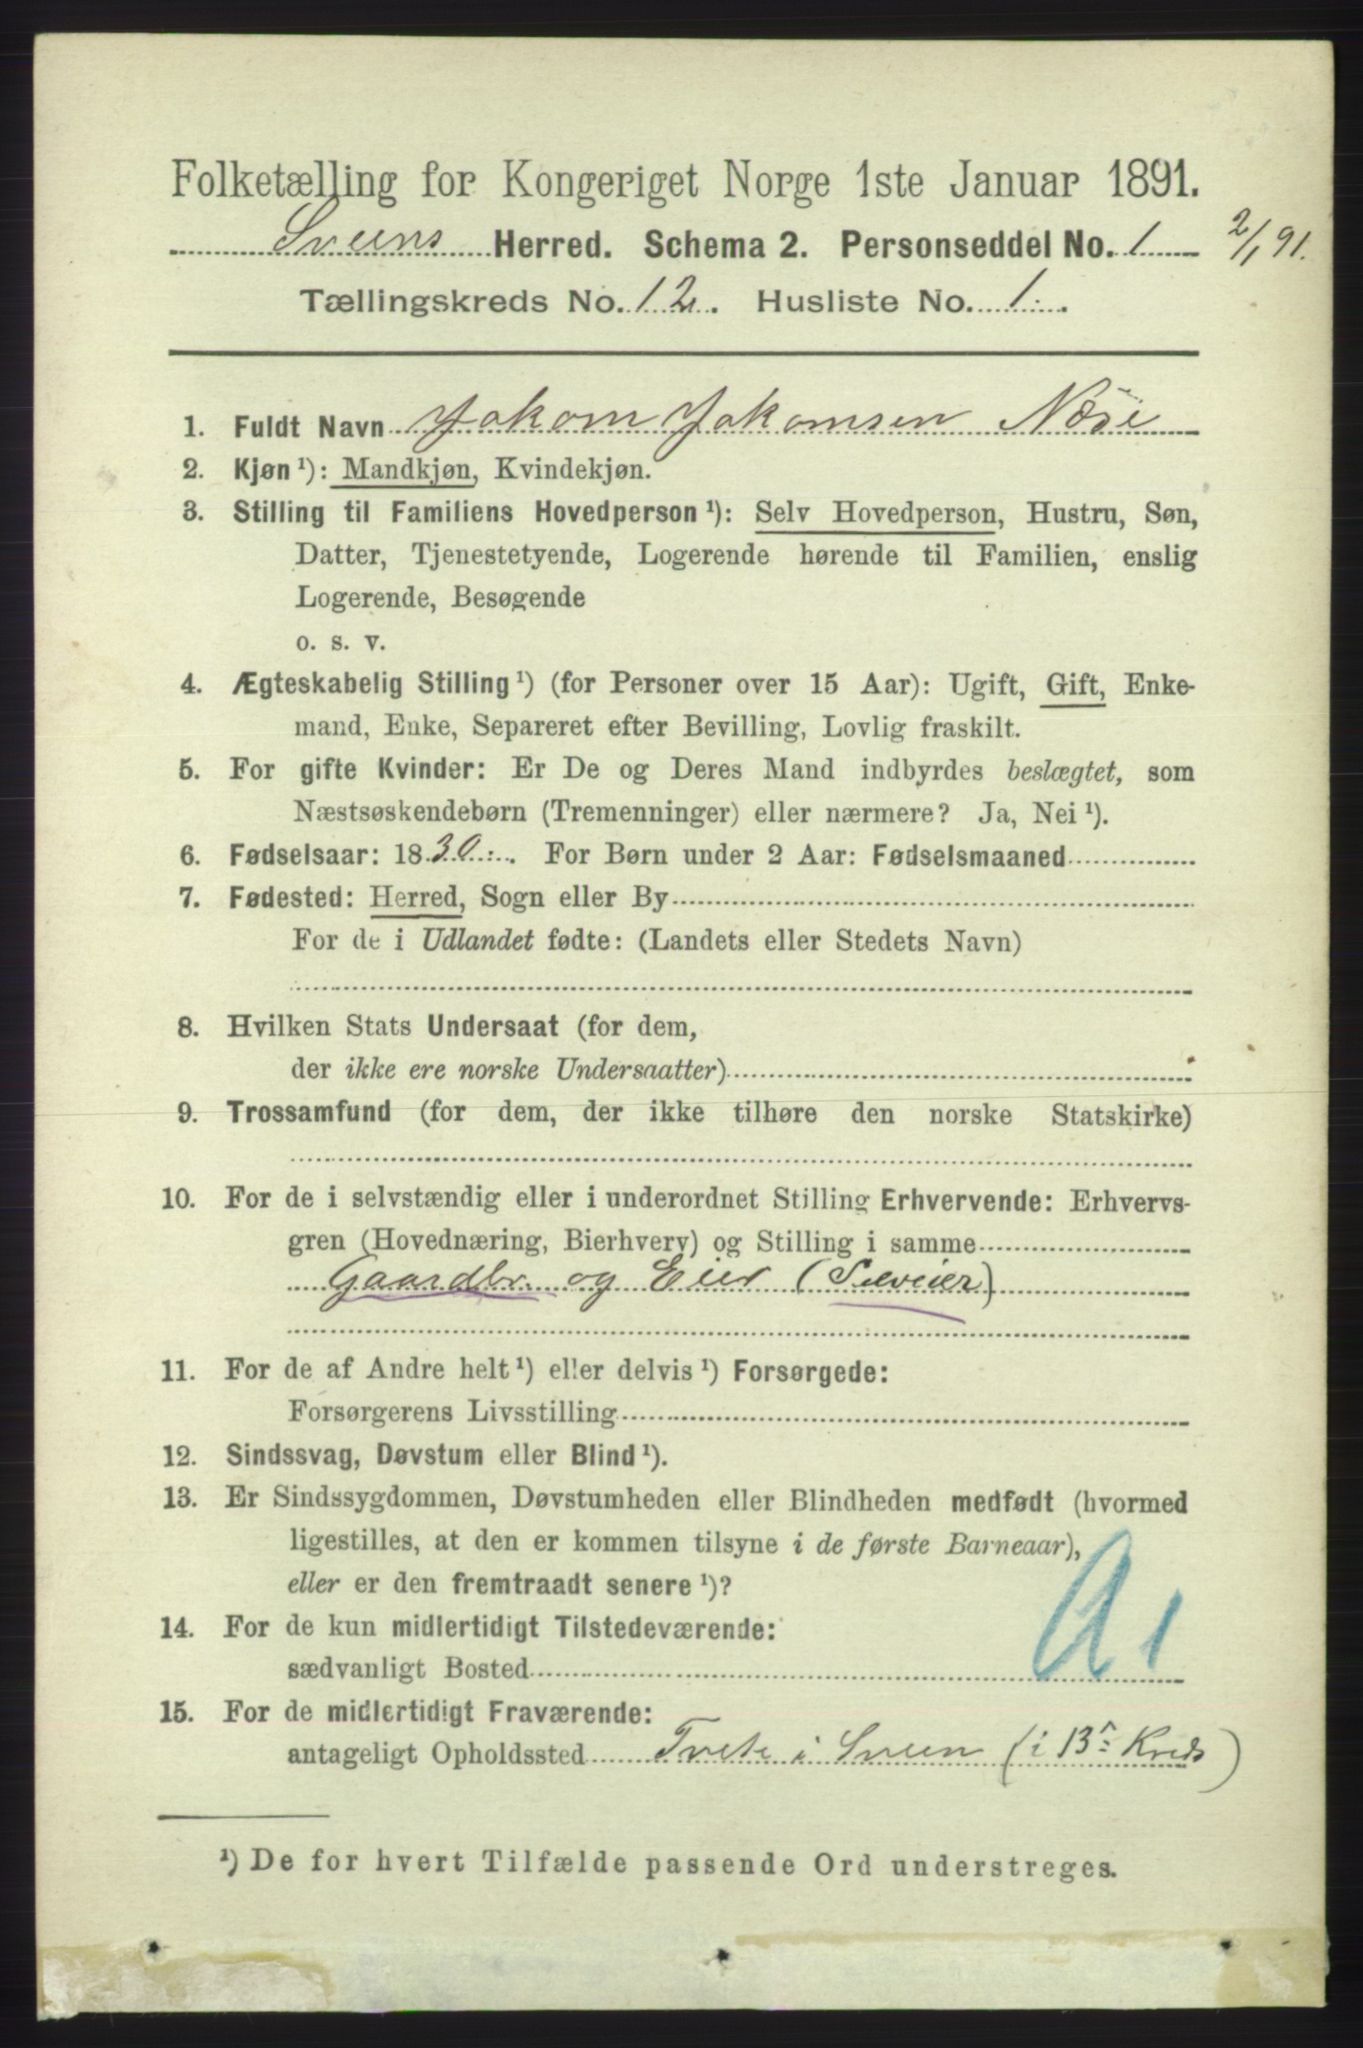 Folketælling for Kongeriget Norge 1ste Januar 1891.
Sveens Herred. Schema 2. Personseddel No. 1 2/1 91.
Tællingskreds No. 12. Husliste No. 1.
1. Fuldt Navn Jakom Jakomsen
2. Kjøn ¹): Mandkjøn, Kvindekjøn.
3. Stilling til Familiens Hovedperson ¹): Selv Hovedperson, Hustru, Søn,
Datter, Tjenestetyende, Logerende hørende til Familien, enslig
Logerende, Besøgende
o. s. v.
4. Ægteskabelig Stilling ¹) (for Personer over 15 Aar): Ugift, Gift, Enke-
mand, Enke, Separeret efter Bevilling, Lovlig fraskilt.
5. For gifte Kvinder: Er De og Deres Mand indbyrdes beslægtet, som
Næstsøskendebørn (Tremenninger) eller nærmere? Ja, Nei ¹).
6. Fødselsaar: 1830. For Børn under 2 Aar: Fødselsmaaned
7. Fødested: Herred, Sogn eller By
For de i Udlandet fødte: (Landets eller Stedets Navn)
8. Hvilken Stats Undersaat (for dem,
der ikke ere norske Undersaatter)
9. Trossamfund (for dem, der ikke tilhøre den norske Statskirke)
10. For de i selvstændig eller i underordnet Stilling Erhvervende: Erhvervs-
gren (Hovednæring, Bierhverv) og Stilling i samme
Gaardbr. og Eier (Selveier)
11. For de af Andre helt ¹) eller delvis ¹) Forsørgede:
Forsørgerens Livsstilling
12. Sindssvag, Døvstum eller Blind ¹).
13. Er Sindssygdommen, Døvstumheden eller Blindheden medfødt (hvormed
ligestilles, at den er kommen tilsyne i de første Barneaar),
eller er den fremtraadt senere ¹)?
A1
14. For de kun midlertidigt Tilstedeværende:
sædvanligt Bosted
15. For de midlertidigt Fraværende:
antageligt Opholdssted Tvete i Sveen (i 13 Kreds)
¹) De for hvert Tilfælde passende Ord understreges.